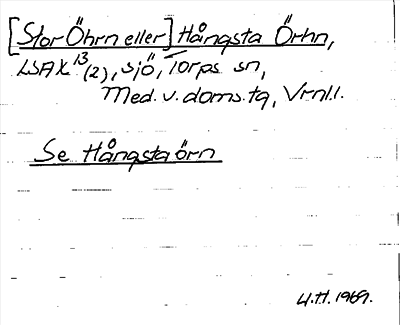 [Stor Öhrn eller] Hångsta Örhn,
LSAX¹³(2), sjö, Torps sn,
Med. v. doms. tg, Vrnl.l.
Se Hångstaörn
U.H. 1969.